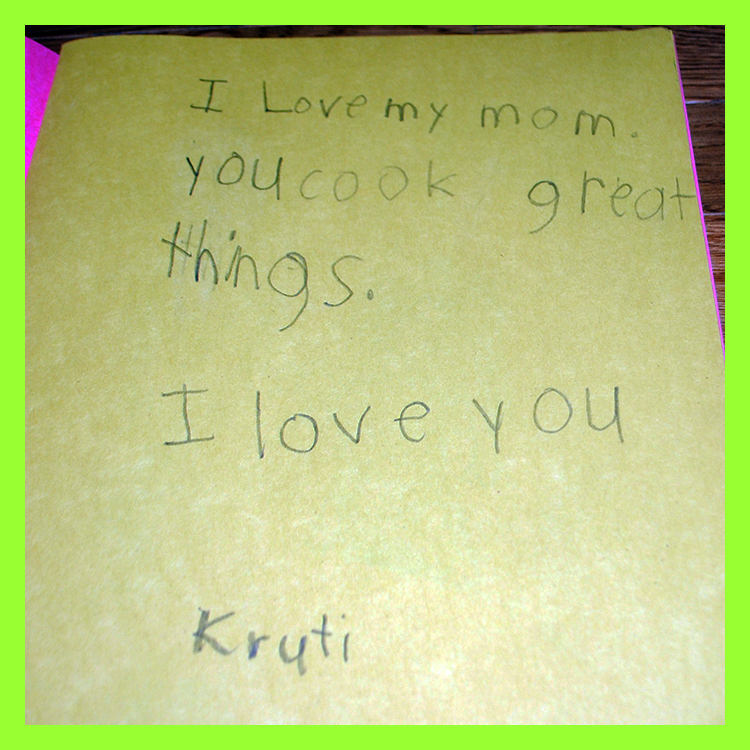 I Love my mom.
you cook great
things.
I love you
Kruti